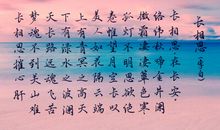 长相思 李白
长相思在长安
络纬秋啼金井阑
微霜凄凄簟色寒
孤灯不明思欲绝
卷帷望月空长叹
美人如花隔云端
上有青冥之高天
下有渌水之波澜
天长路远魂飞苦
梦魂不到关山难
长相思摧心肝